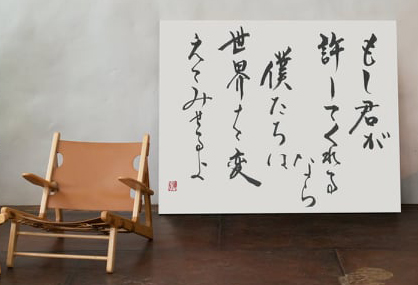 もし君が
許してくれるなら
僕たちは
世界を変
えてみせるよ